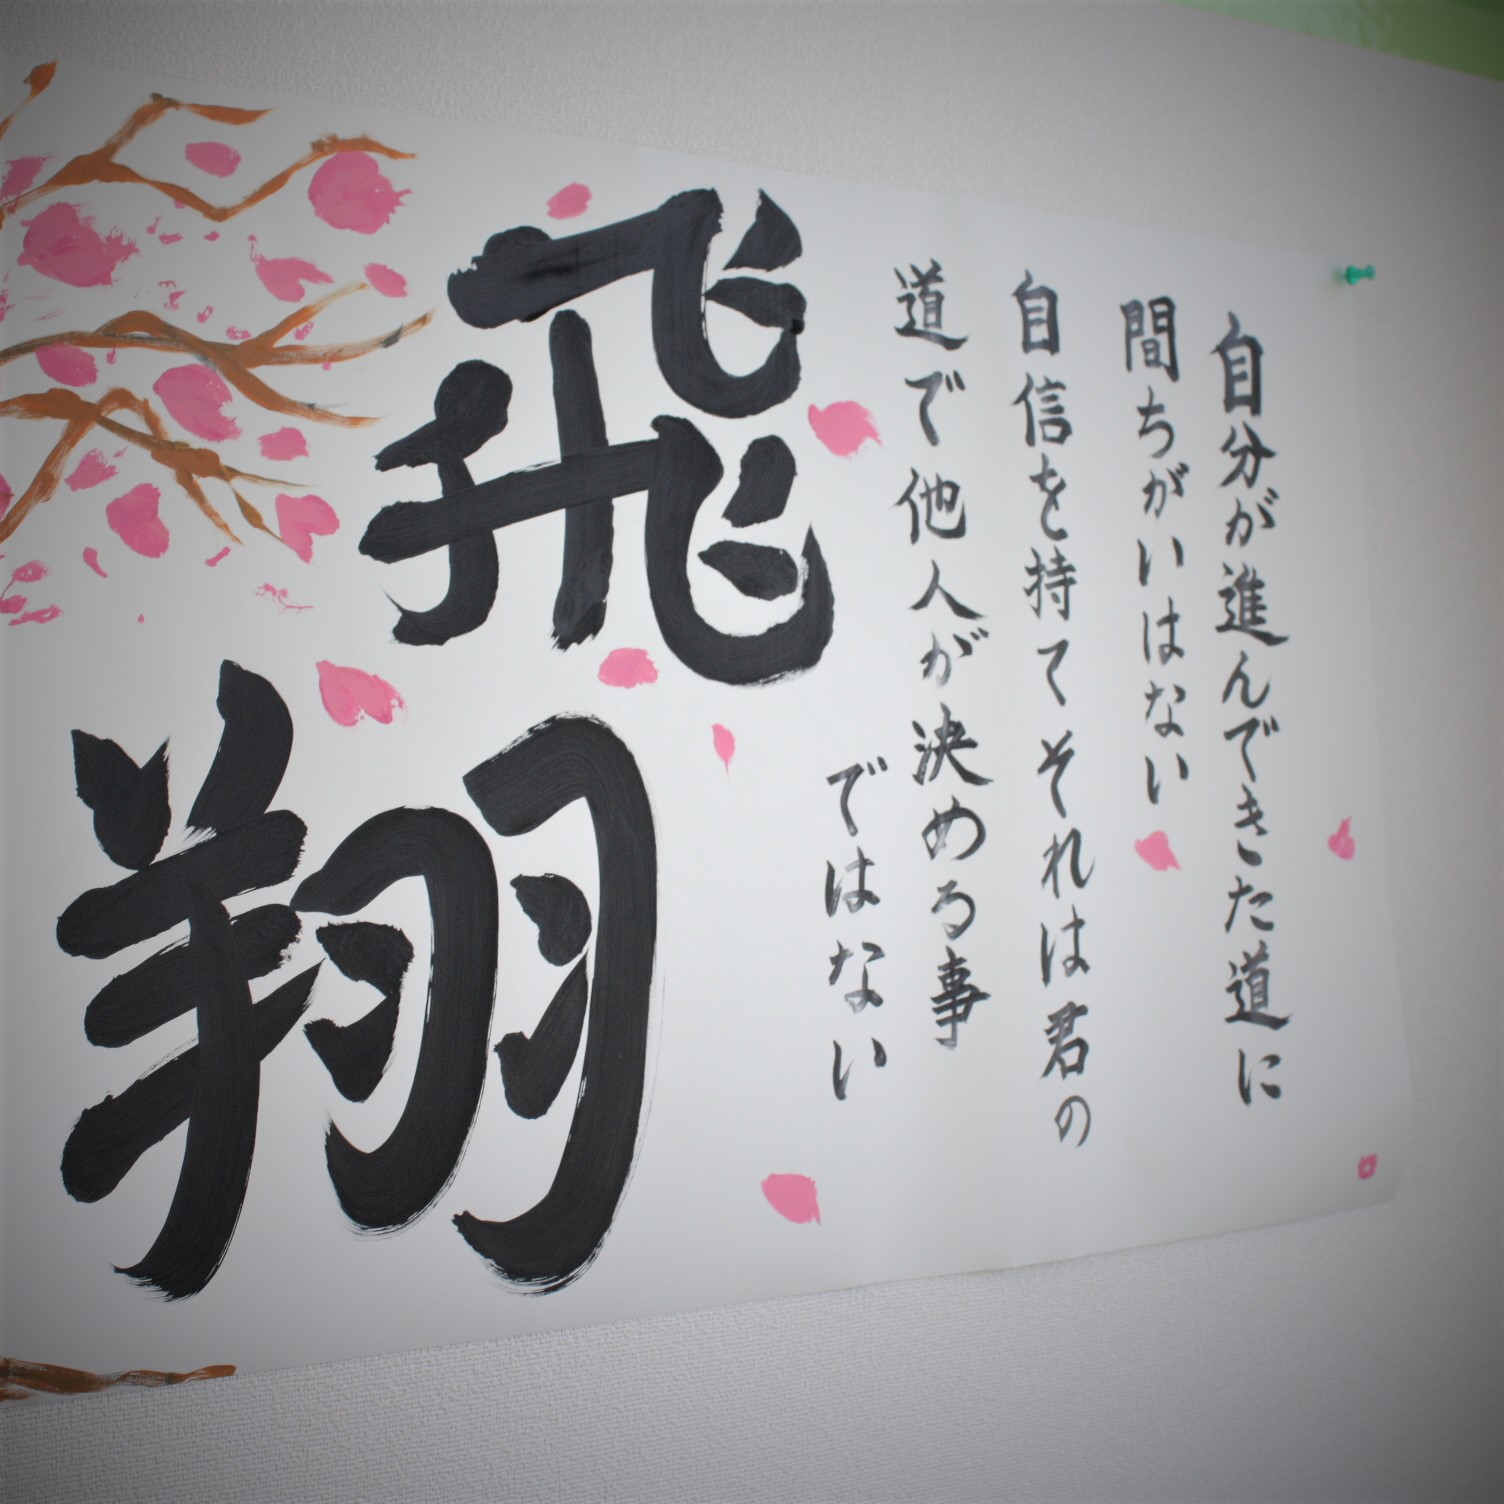 自分が進んできた道に
間ちがいはない
自信を持てそれは君の
道で他人が決める事
ではない
飛翔